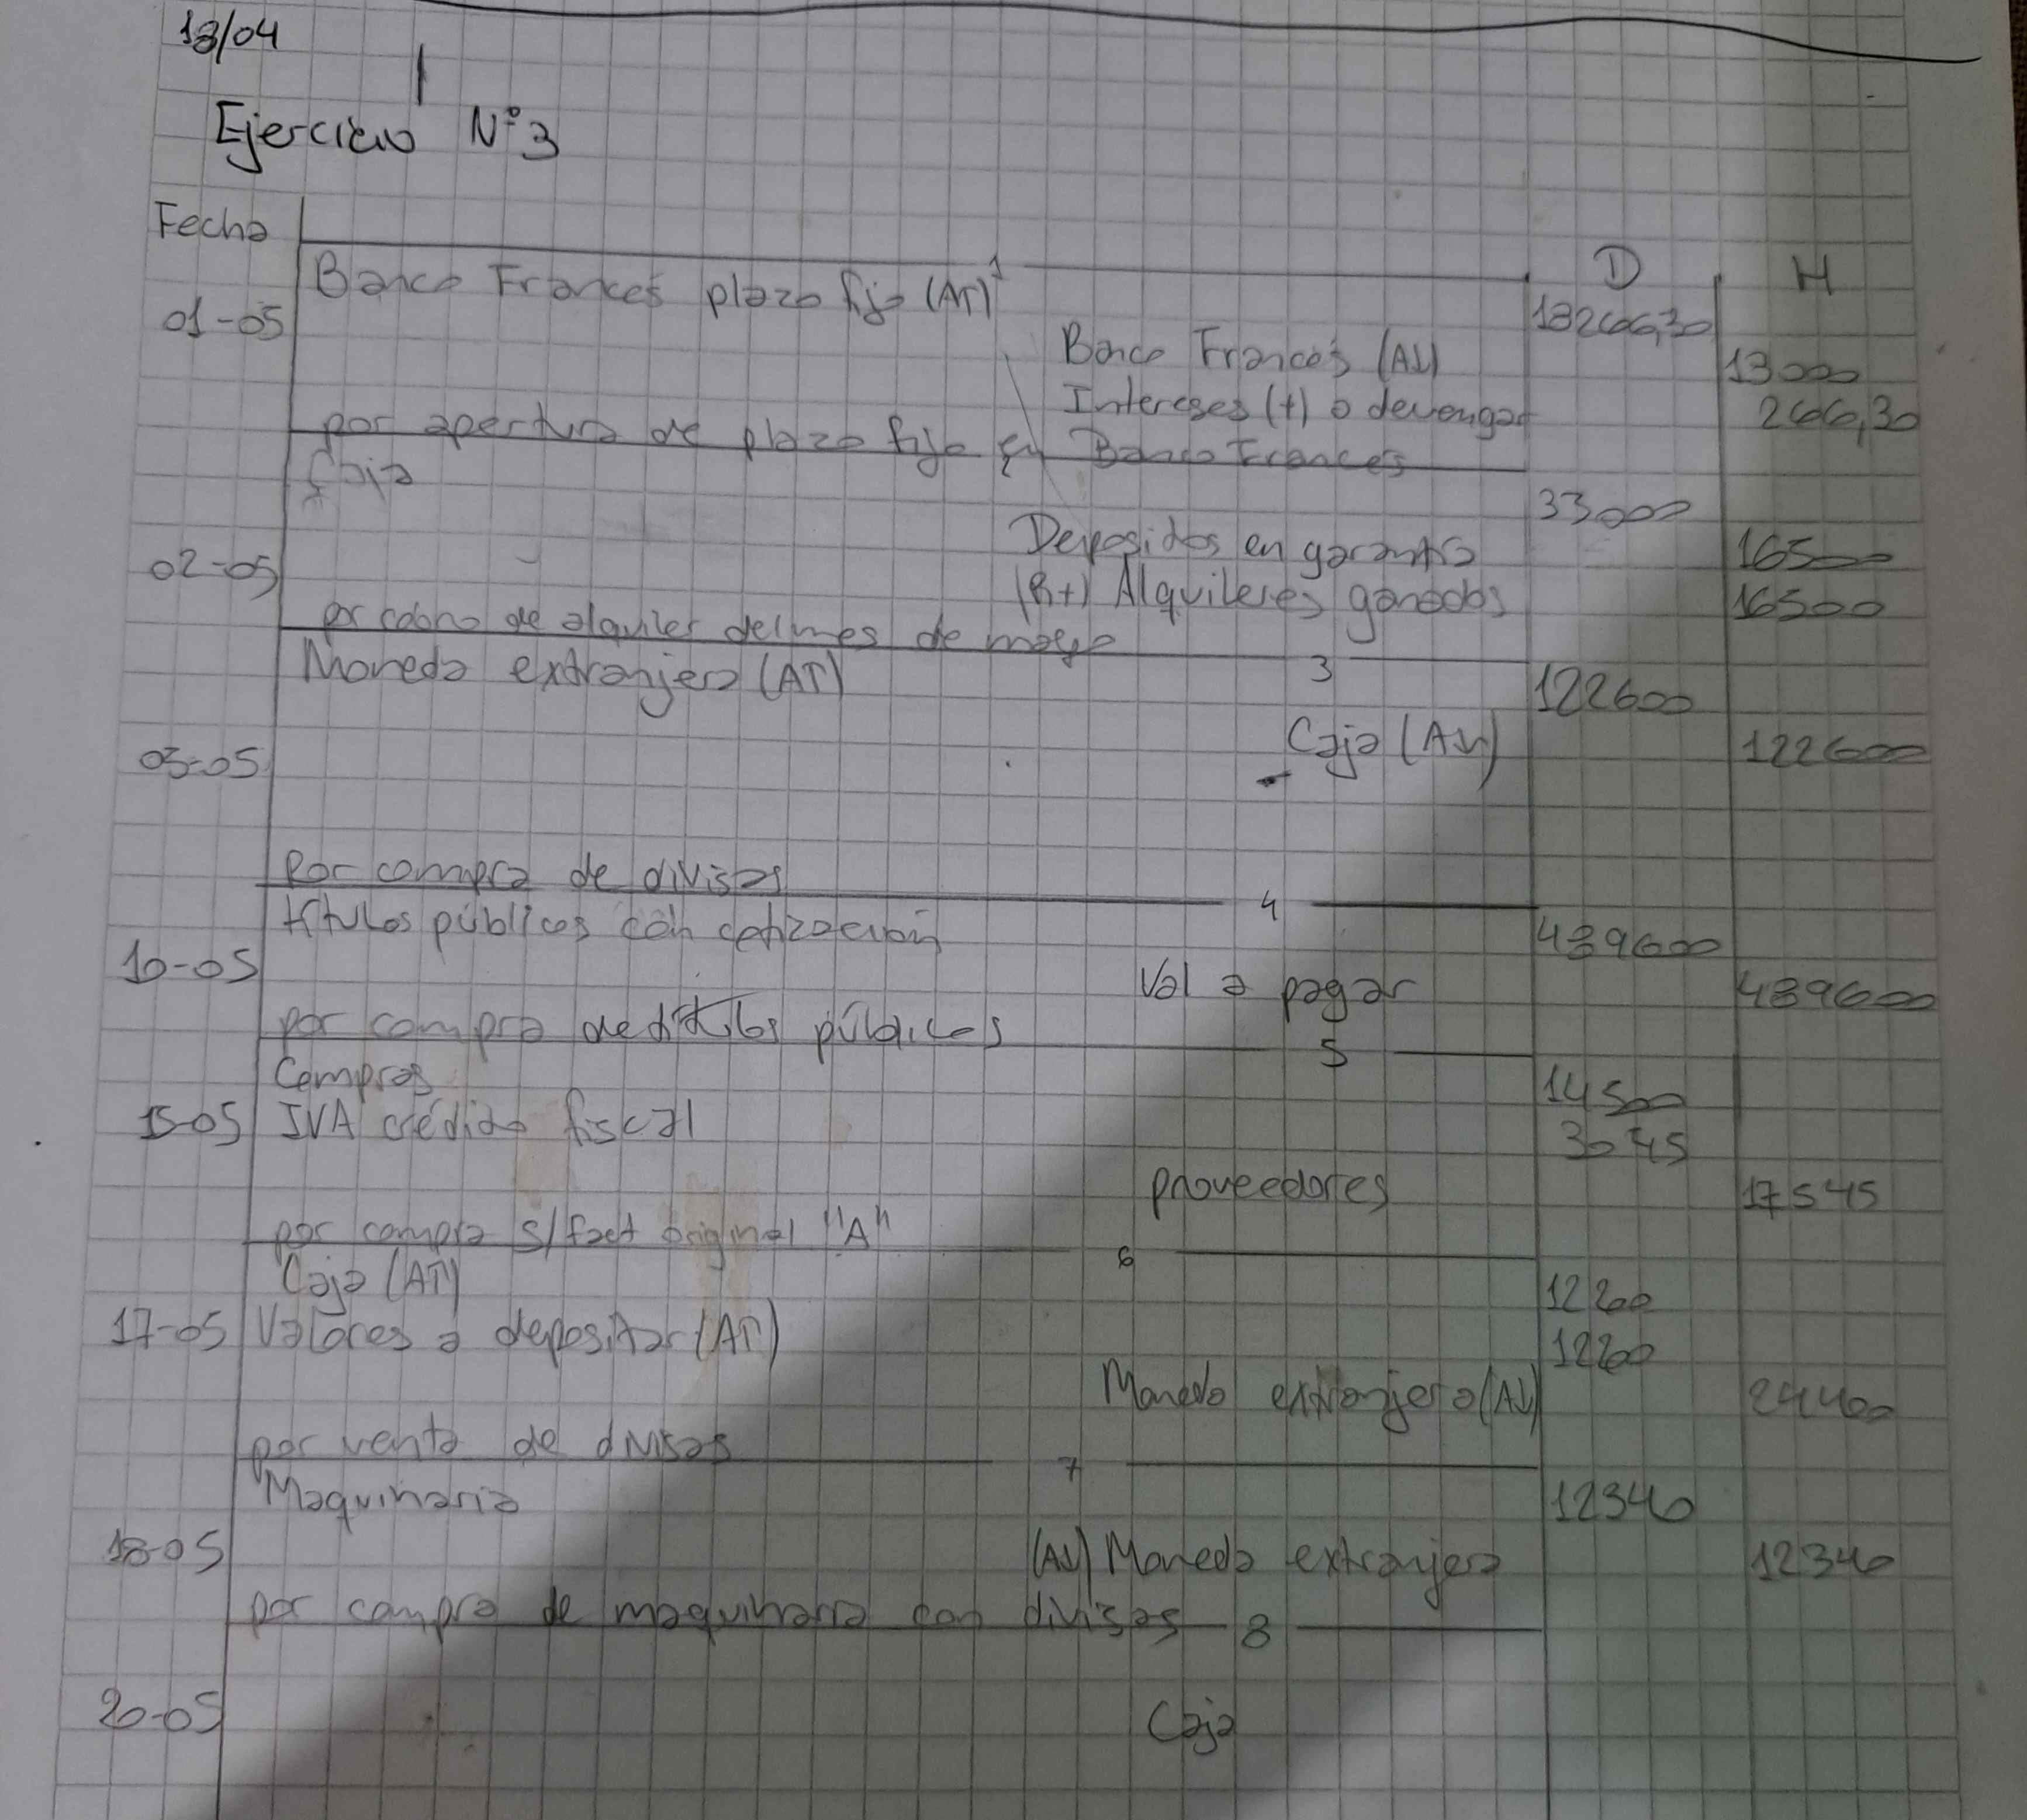 18/04
Ejercicio N°3
Fecha D H
1
Banco Frances plazo fijo (A↑) 13266,30
01-05 Banco Frances (A↓) 13000
Intereses (+) a devengar 266,30
por apertura de plazo fijo en Banco Frances
2
Caja 33000
Deposidos en garantia 16500
02-05 (R+) Alquileres ganados 16500
por cobro de alquiler del mes de mayo
3
Moneda extranjera (A↑) 122600
03-05 Caja (A↓) 122600
Por compra de divisas
4
títulos públicos con cotización 489600
10-05 Val a pagar 489600
por compra de títulos públicos
5
Compras 14500
15-05 IVA crédito fiscal 3045
proveedores 17545
por compra s/fact original "A"
6
Caja (A↑) 12200
17-05 Valores a depositar (A↑) 12200
Moneda extranjera (A↓) 24400
por venta de divisas
7
Maquinaria 12340
18-05 (A↓) Moneda extranjera 12340
por compra de maquinaria con divisas
8
20-05 Caja